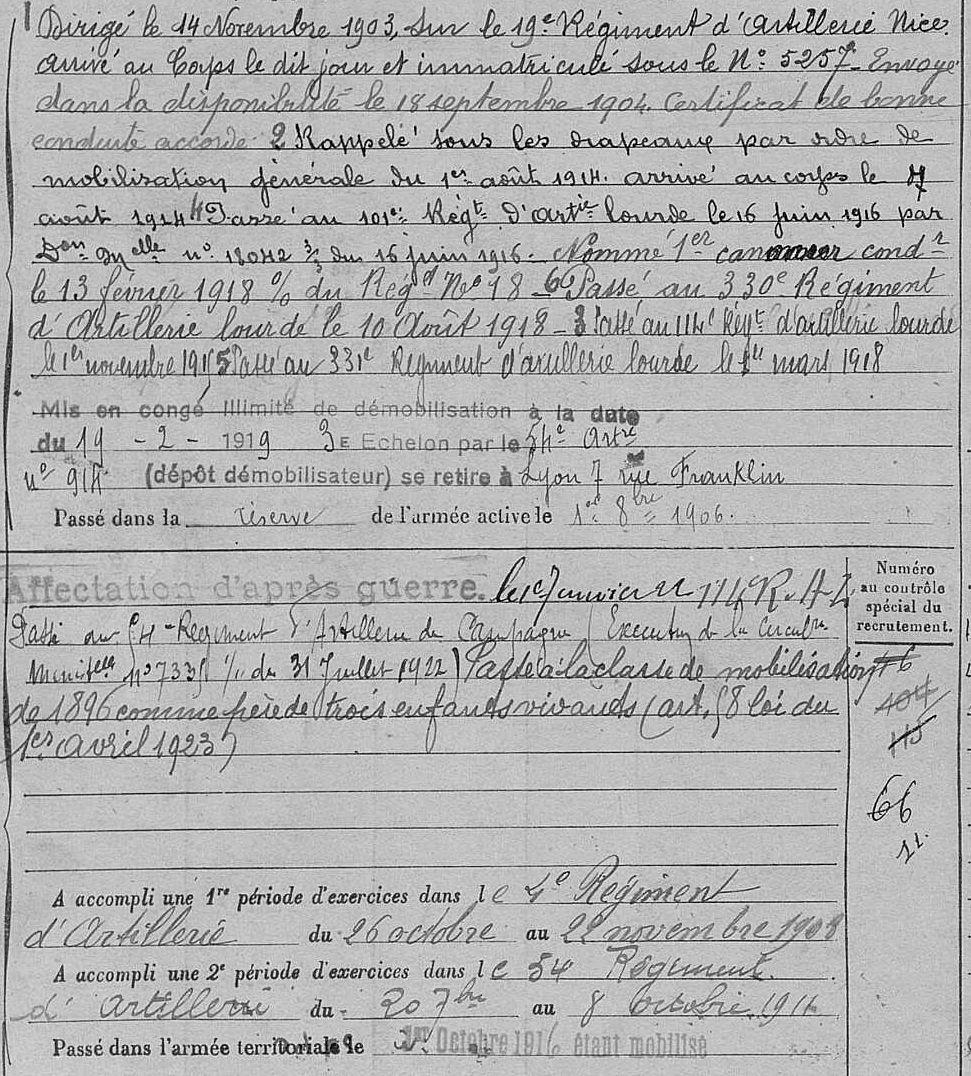 Dirigé le 14 Novembre 1903, sur le 19e Régiment d'Artillerie Nice.
arrivé au Corps le dit jour et immatriculé sous le No: 5257 - Envoyé
dans la disponibilité le 18 septembre 1904. Certificat de bonne
conduite accordé. 2 Rappelé sous les drapeaux par ordre de
mobilisation générale du 1er août 1914. arrivé au corps le 7
août 1914 4 Passé au 101e Régt d'Artie lourde le 16 juin 1916 par
Don Mlle no 18042 3/3 du 16 juin 1916. Nommé 1er canonnier condr
le 13 février 1918 % du Régt No 18 - 6 Passé au 330e Régiment
d'Artillerie lourde le 10 Août 1918 - 3 Passé au 114e Régt d'artillerie lourde
le 1er novembre 1915 5 Passé au 331e Régiment d'artillerie lourde le 1er mars 1918
Mis en congé illimité de démobilisation à la date
du 19 - 2 - 1919 3E Echelon par le 54e Artie
no 914 (dépôt démobilisateur) se retire à Lyon 7 rue Franklin
Passé dans la réserve de l'armée active le 1er 8bre 1906.
Affectation d'après guerre. le 1er Janvier 114e R.A.L
Numéro
au contrôle
spécial du
recrutement.
Passé au 54e Régiment d'Artillerie de Campagne (Exécution de la Circulre
Ministlle no 7335 1/11 du 31 Juillet 1922) Passé à la classe de mobilisation
de 1896 comme père de trois enfants vivants (art. 58 loi du
1er avril 1923)
104
115
66
11.
A accompli une 1re période d'exercices dans le 4e Régiment
d'Artillerie du 26 octobre au 22 novembre 1908
A accompli une 2e période d'exercices dans le 54 Régiment.
d'Artillerie du 20 7bre au 8 octobre 1911
Passé dans l'armée territoriale le 1er Octobre 1916 étant mobilisé